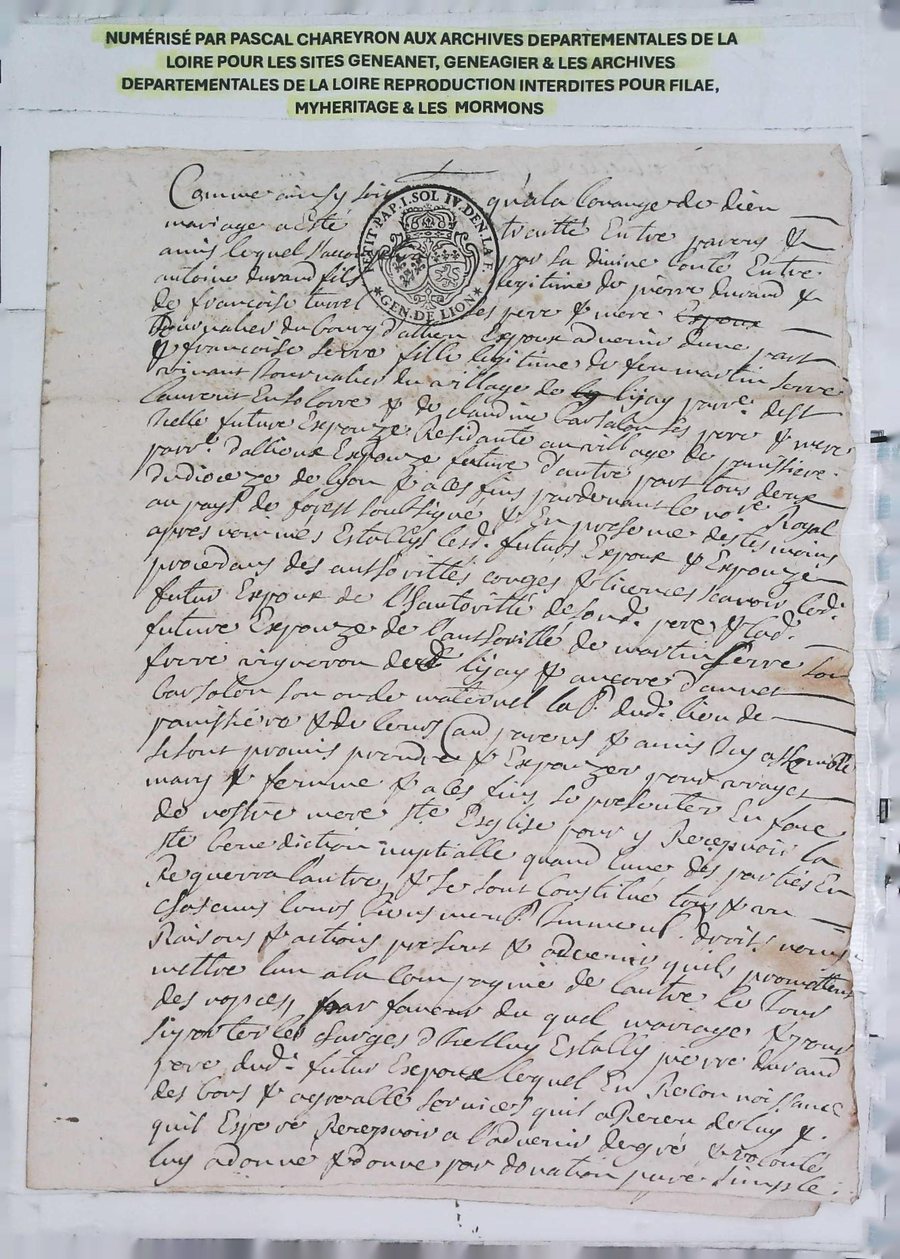 NUMÉRISÉ PAR PASCAL CHAREYRON AUX ARCHIVES DEPARTEMENTALES DE LA
LOIRE POUR LES SITES GENEANET, GENEAGIER & LES ARCHIVES
DEPARTEMENTALES DE LA LOIRE REPRODUCTION INTERDITES POUR FILAE,
MYHERITAGE & LES MORMONS
PETIT PAP. 1. SOL IV. DEN. LA F.
GEN. DE LION
Comme ainsy soit qu'a la louange de dieu
mariage a Esté traitté Entre parens &
amis lequel par sa divine bonté Entre
antoine durand fils legitime de pierre durand &
de françoise ses pere & mere Expoux
Journalier du bourg d'allieu Expoux advenir d'une part
& françoise serre fille legitime de feu martin serre
vivant Journalier du village de lijay parr.e de st
laurent & de claudine barsalon ses pere & mere
Icelle future Expouze Residante au village de panissiere
parr.e d'allieux Expouze future d'autre part tous deux
du dioceze de lyon & a les fins pardevant le no.re Royal
au pays de forest soubsigné & En presence des tesmoins
apres nommés Estably lesd. futurs Expoux & Expouze
procedans des authorittés congés & licences scavoir led.
futur Expoux de l'hauthoritté de sond. pere & lad.
future Expouze de l'authoritté de martin serre son
frere vigneron de lijay & ancore d'annet
barsalon son oncle maternel la P. dud. lieu de
panissiere & de leurs parens & amis Icy assemblé
se sont promis prendre & Expouzer pour vrayes
mary & femme & a les fins se presenter En face
de nostre mere ste Esglise pour y Recepvoir la
ste benediction nuptialle quand l'une des parties En
Requerra l'autre, & se sont Constitué tous & un
chascuns leurs biens meub. Immeub. droits noms
Raisons & actions present & advenir qu'ils promettent
mettre l'un a la Compagnie de l'autre le Jour
des nopces, par faveur du quel mariage & pour
suporter les charges d'Icelluy Estably pierre durand
pere dud. futur Expoux lequel En Reconnoissance
des bons & agreable services qu'il a Receu de luy &
qu'il Espere Recepvoir a l'advenir de gré & volonté
luy a donné & donne par donation pure simple